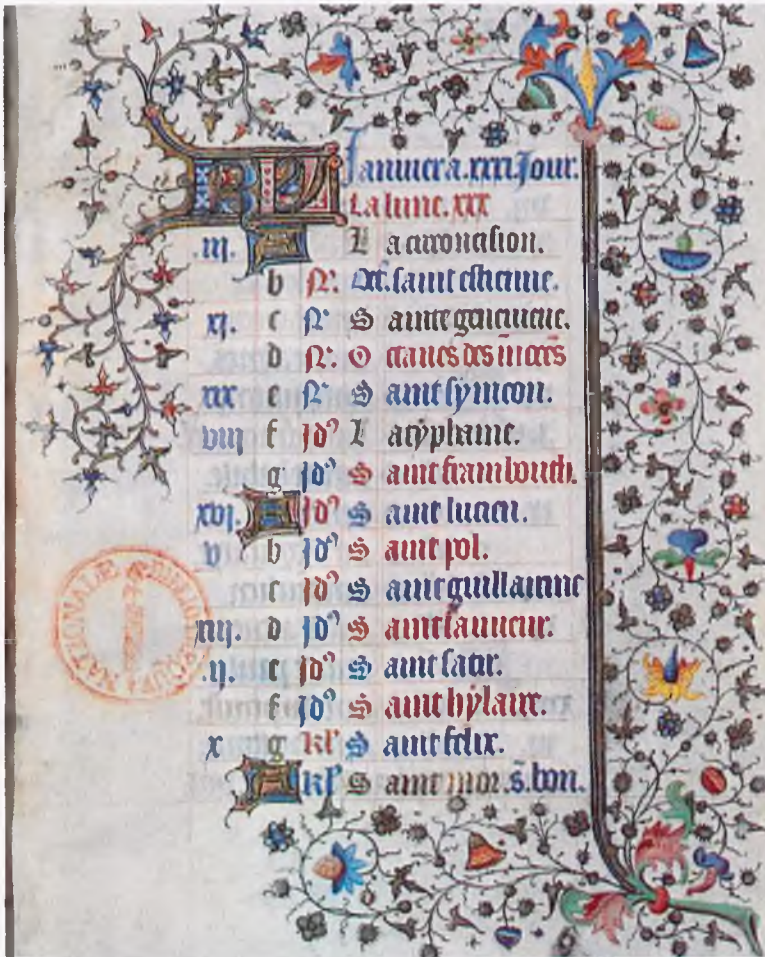 KL Januier a .xxxi. Jour.
La lune .xxx
.iij. A La circoncision.
b N. Oct. saint estienne.
xj. c N Sainte geneuieue.
d N. Octaues des
xix e N Saint symeon.
viij f jd La typhaine.
g jd Saint frambouth.
xvj. A jd Saint lucien.
v b jd Saint pol.
c jd Saint guillaume
xiij. d jd Saint sauueur.
.ij. e jd Saint satir.
f jd Saint hylaire.
x g kl Saint felix.
A kl Saint mor. s. bon.
BIBLIOTHEQUE NATIONALE